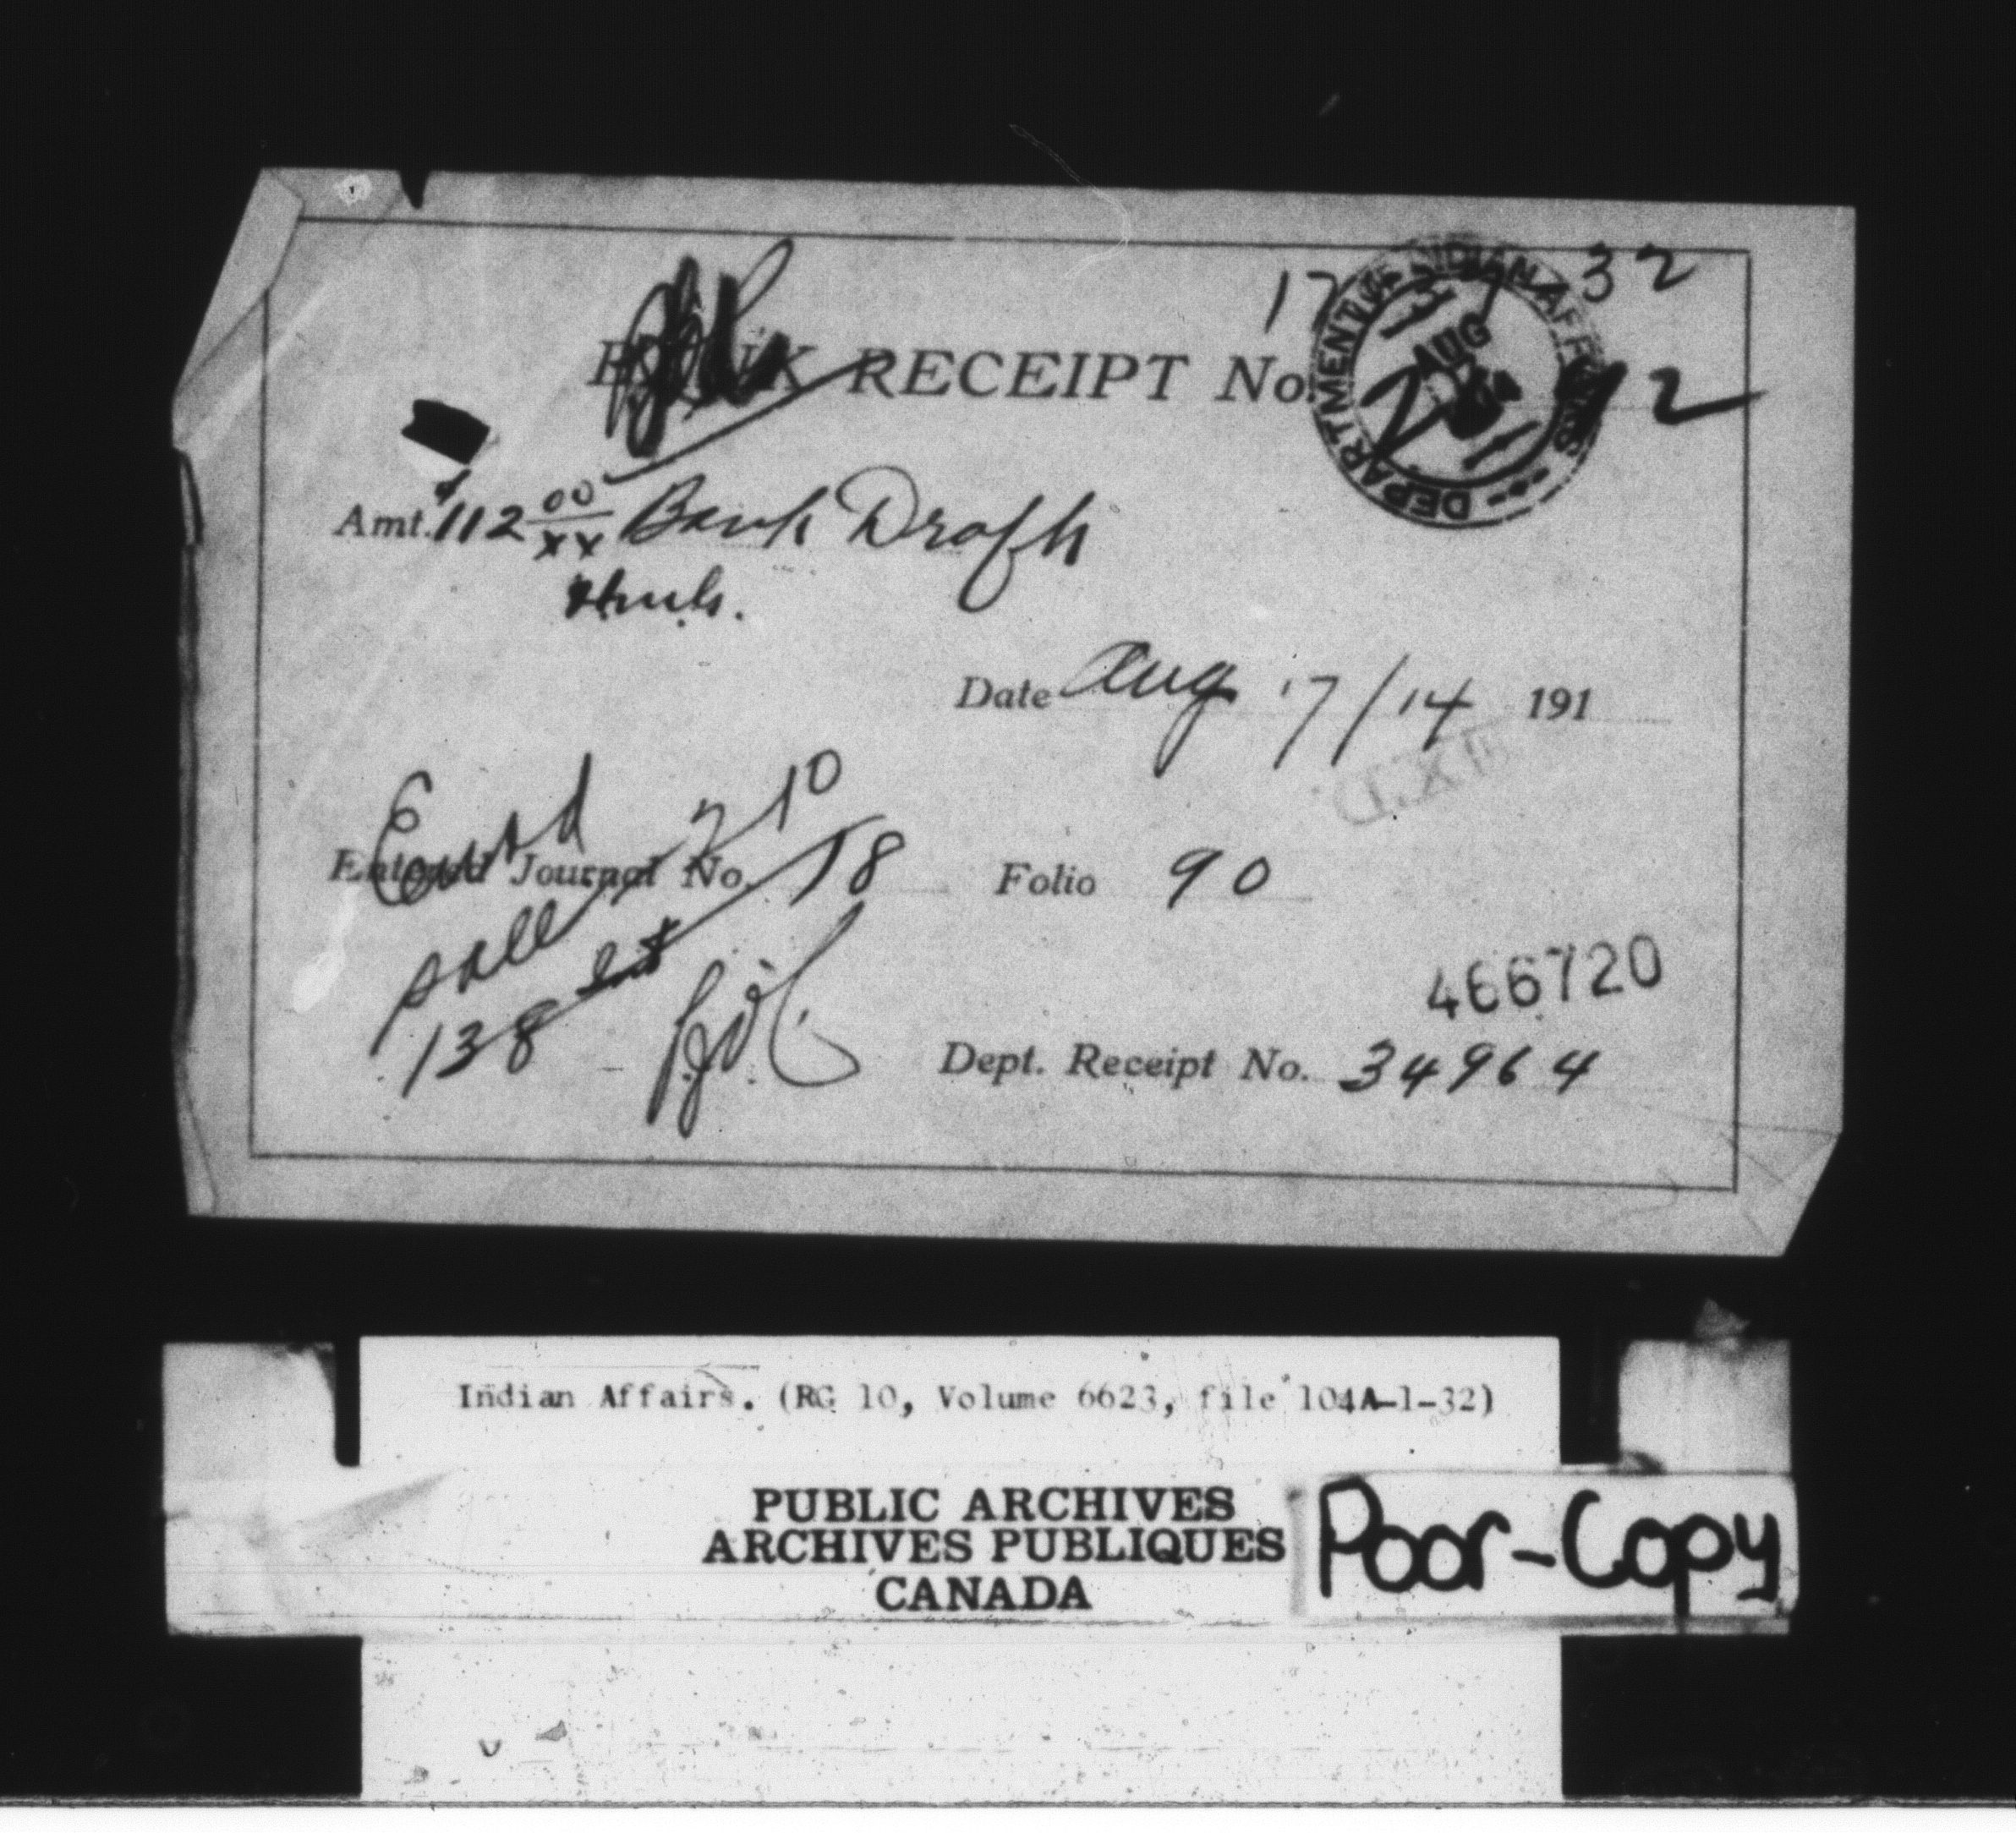 32
BANK RECEIPT No.
DEPARTMENT OF INDIAN AFFAIRS
AUG
Amt. $112 00/xx Bank Draft
Date Aug 17/14 191
Ent'd 210
Entered Journal No. 18 Folio 90
138
466720
Dept. Receipt No. 34964
Indian Affairs. (RG 10, Volume 6623, file 104A-1-32)
PUBLIC ARCHIVES
ARCHIVES PUBLIQUES
CANADA
Poor-Copy